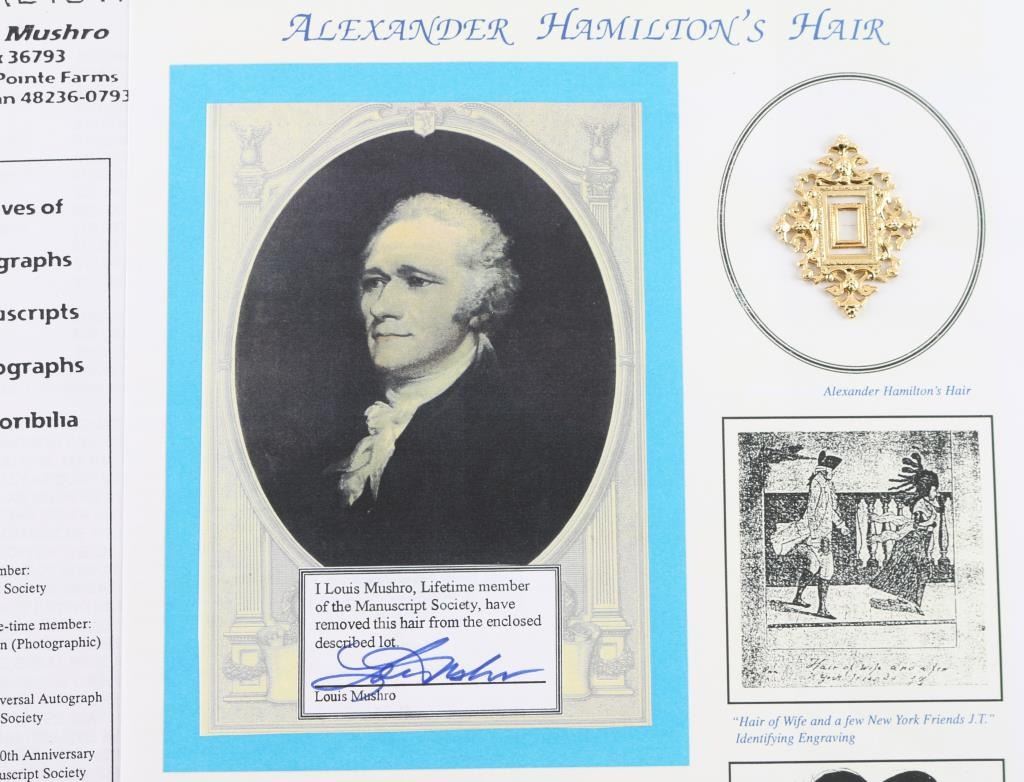 Mushro
36793
Pointe Farms
an 48236-0793
ves of
graphs
uscripts
ographs
oribilia
mber:
Society
e-time member:
n (Photographic)
versal Autograph
Society
0th Anniversary
uscript Society
ALEXANDER HAMILTON'S HAIR
I Louis Mushro, Lifetime member
of the Manuscript Society, have
removed this hair from the enclosed
described lot.
Louis Mushro
Alexander Hamilton's Hair
Hair of Wife and a few
York friends
"Hair of Wife and a few New York Friends J.T."
Identifying Engraving